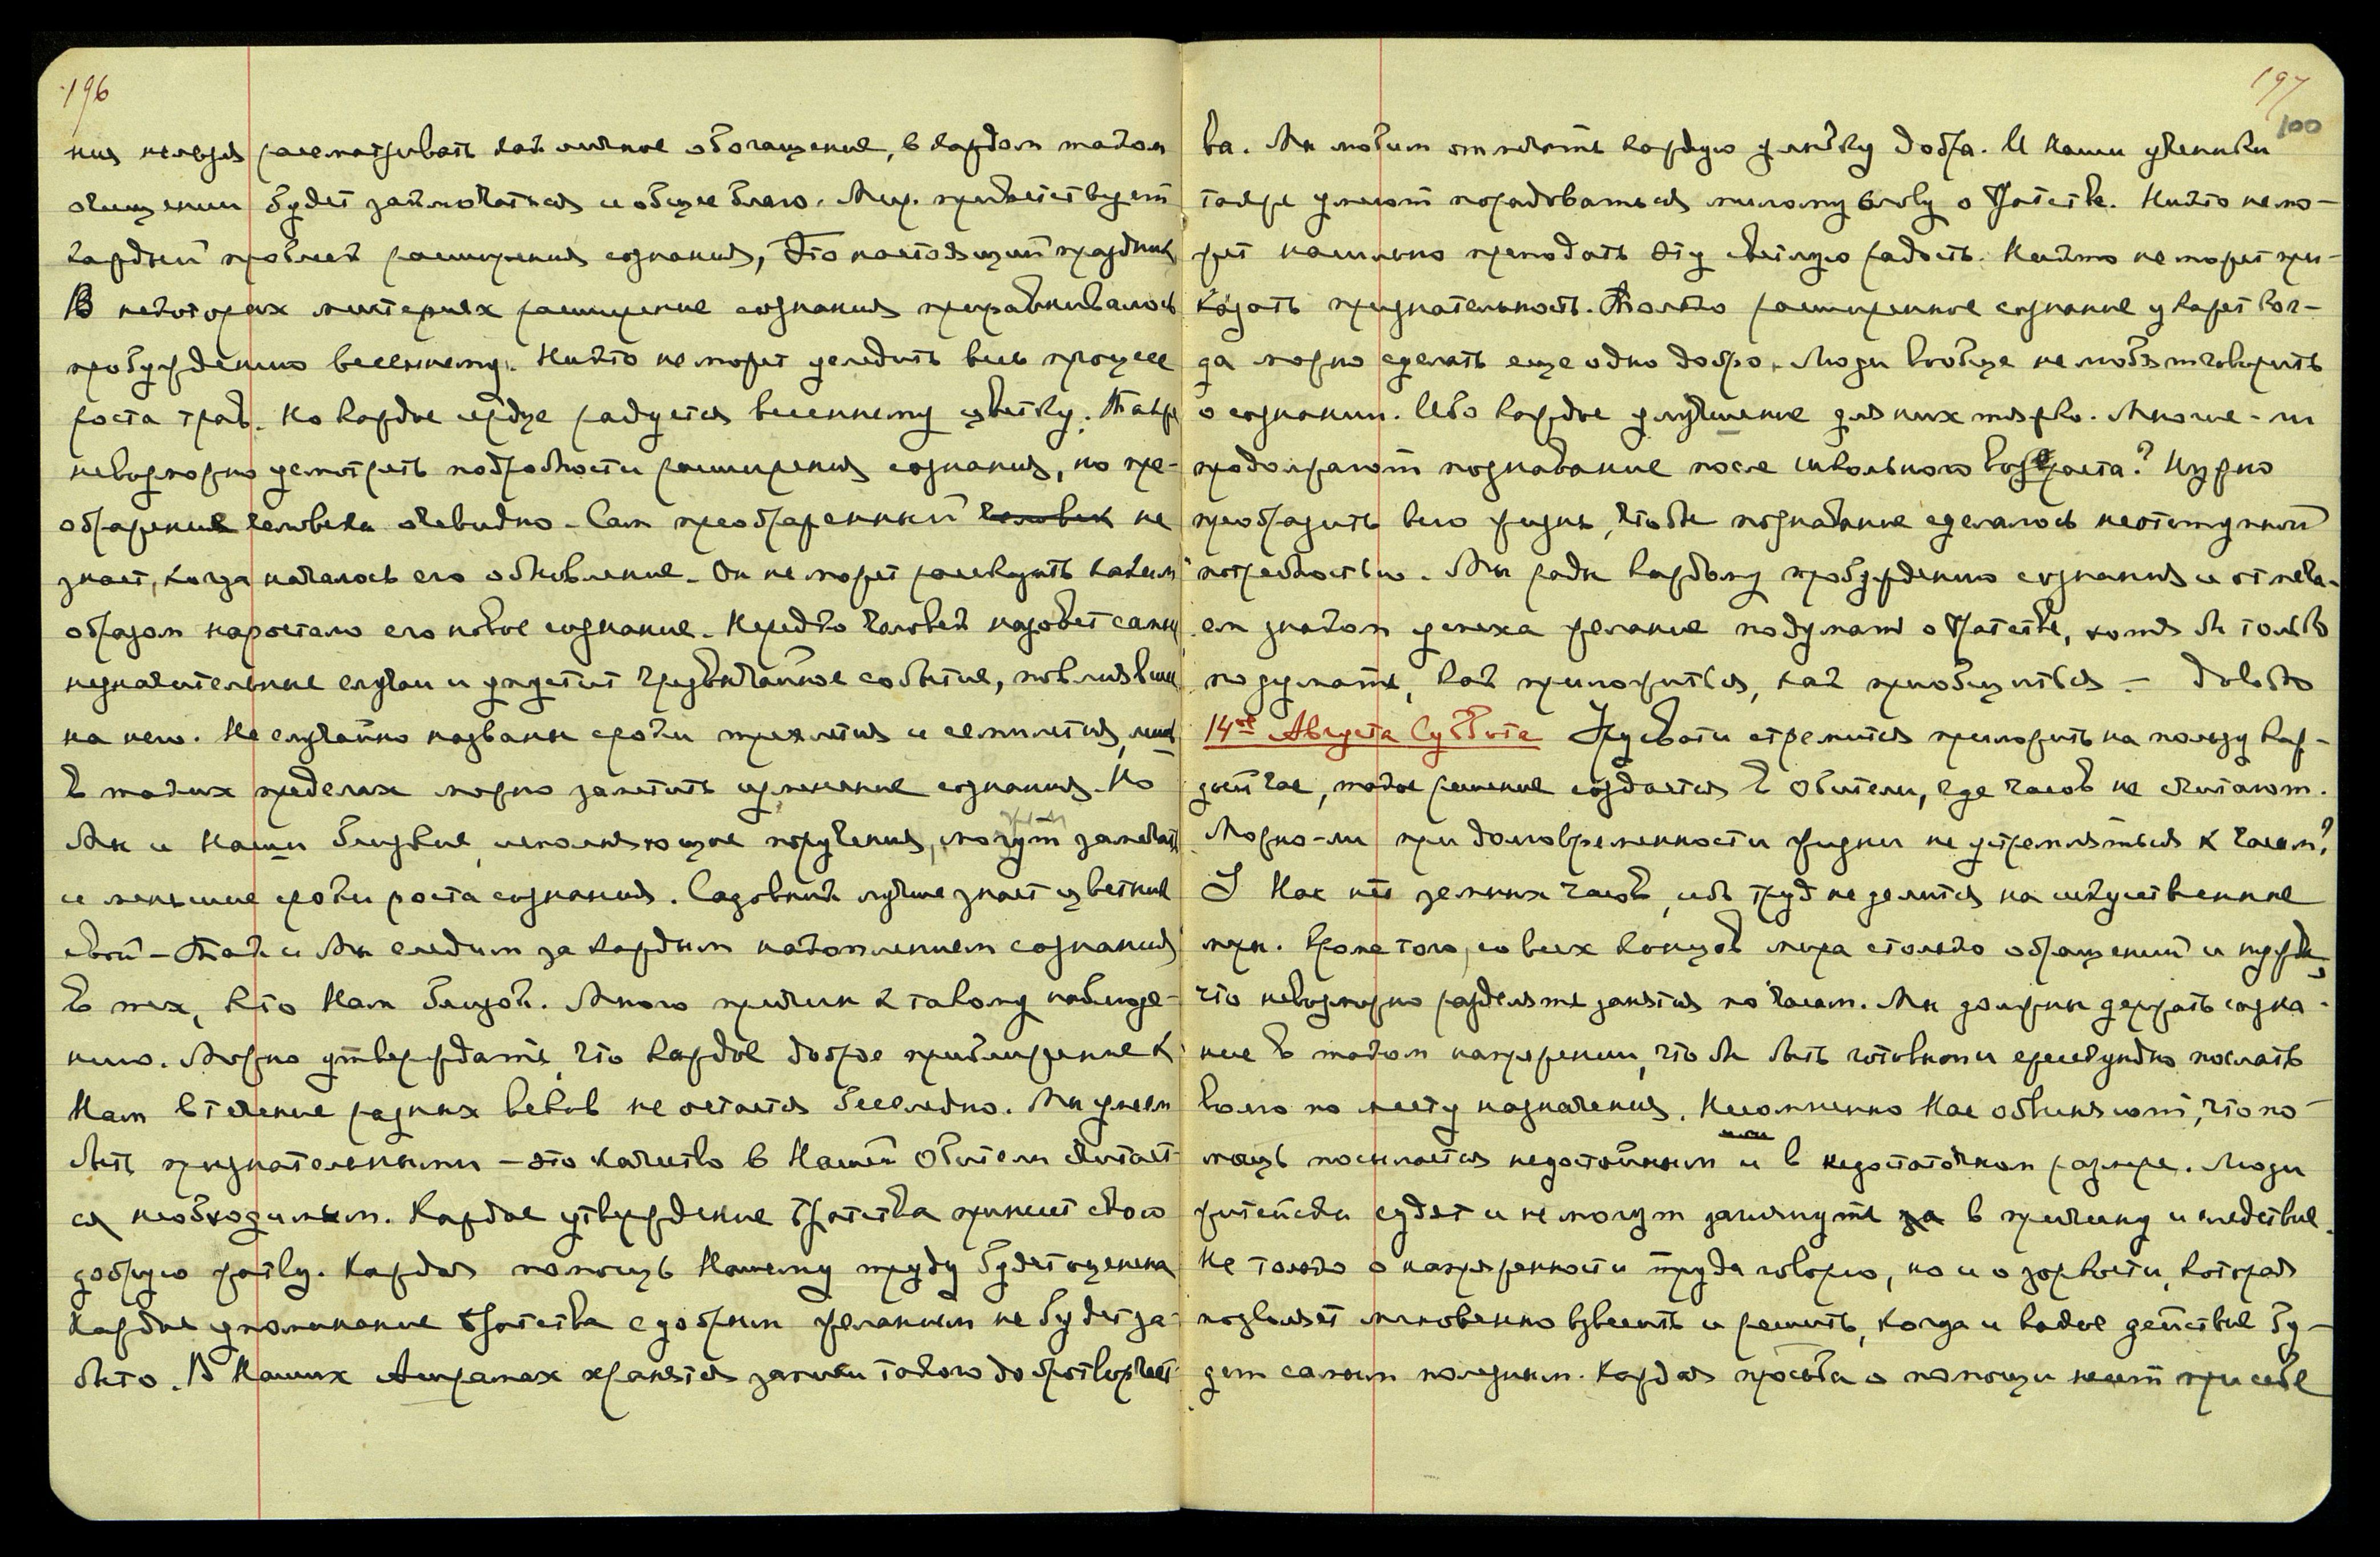 196
ния нельзя рассматривать как личное обогащение, в каждом таком
очищении будет заключаться и общее благо. Мир приветствует
каждый проблеск расширения сознания, Это настоящий праздник
В некоторых мистериях расширение сознания приравнивалось
пробуждению весеннему. Никто не может уследить весь процесс
роста трав. Но каждое сердце радуется весеннему цветку. Также
невозможно усмотреть подробности расширения сознания, но пре-
ображение человека очевидно. Сам преображенный человек не
знает, когда началось его обновление. Он не может рассказать каким
образом наростало его новое сознание. Нередко человек назовет самые
незначительные случаи и упустит чрезвычайное событие, повлиявшее
на него. Не случайно названы сроки трехлетия и семилетия, лишь
в таких пределах можно заметить изменение сознания. Но
Мы и Наши близкие, исполняющие поручения, могут замечать
и меньшие сроки роста сознания. Садовник лучше знает цветник
свой – Так и Мы следим за каждым накоплением сознания
в тех, кто Нам близок. Много причин к такому наблюде-
нию. Можно утверждать, что каждое доброе приближение к
Нам в течение разных веков не остается бесследно. Мы умеем
быть признательными – это качество в Нашей Обители считает-
ся необходимым. Каждое утверждение Братства принесет свою
добрую жатву. Каждая помощь Нашему труду будет оценена
Каждое упоминание Братства с добрым желанием не будет за-
быто. В Наших Ашрамах хранятся записи такого добротворчест-
197
100
ва. Мы любим отмечать каждую улыбку добра. И Наши ученики
также умеют порадоваться милому слову о Братстве. Никто не мо-
жет насильно преподать эту светлую радость. Никто не может при-
казать признательность. Только расширенное сознание укажет ког-
да можно сделать еще одно добро. Люди вообще не любят говорить
о сознании. Ибо каждое улучшение для них тяжко. Многие-ли
продолжают познавание после школьного возраста? Нужно
преобразить всю жизнь, чтобы познавание сделалось неотступной
потребностью. Мы рады каждому пробуждению сознания и отмеча-
ем знаком успеха желание подумать о Братстве, хотя бы только
подумать, как приложиться, как приобщиться. – Довольно
14ое Августа Суббота Урусвати стремится приложить на пользу каж-
дый час, такое решение создается в Обители, где часов не считают.
Можно-ли при долговременности жизни не устремляться к часам?
У Нас нет земных часов, ибо труд не делится на искусственные
меры. Кроме того, со всех концов мира столько обращений и нужды,
что невозможно разделять занятия по часам. Мы должны держать созна-
ние в таком напряжении, чтобы быть готовыми ежесекундно послать
волю по месту назначения. Несомненно Нас обвиняют, что по-
мощь посылается недостойным или в недостаточном размере. Люди
житейски судят и не могут заглянуть за в причину и следствие.
Не только о напряженности труда говорю, но и о зоркости, которая
позволяет мгновенно взвесить и решить, когда и какое действие бу-
дет самым полезным. Каждая просьба о помощи несет при себе